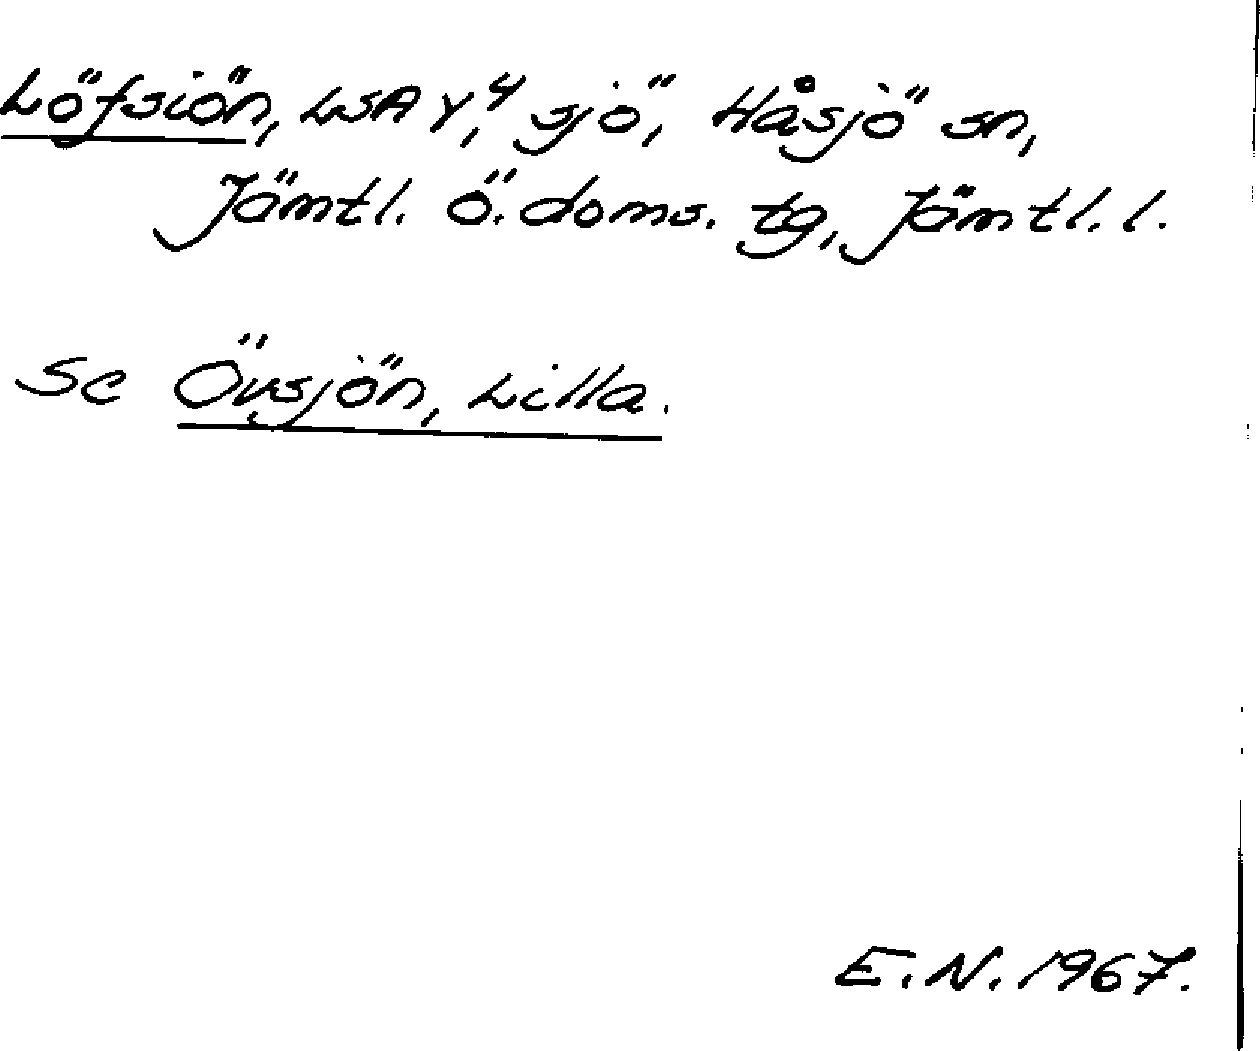 Löfsiön, LSA Y,⁴ sjö, Håsjö sn,
Jämtl. Ö. doms. tg, Jämtl. l.
Se Övsjön, Lilla.
E.N. 1967.